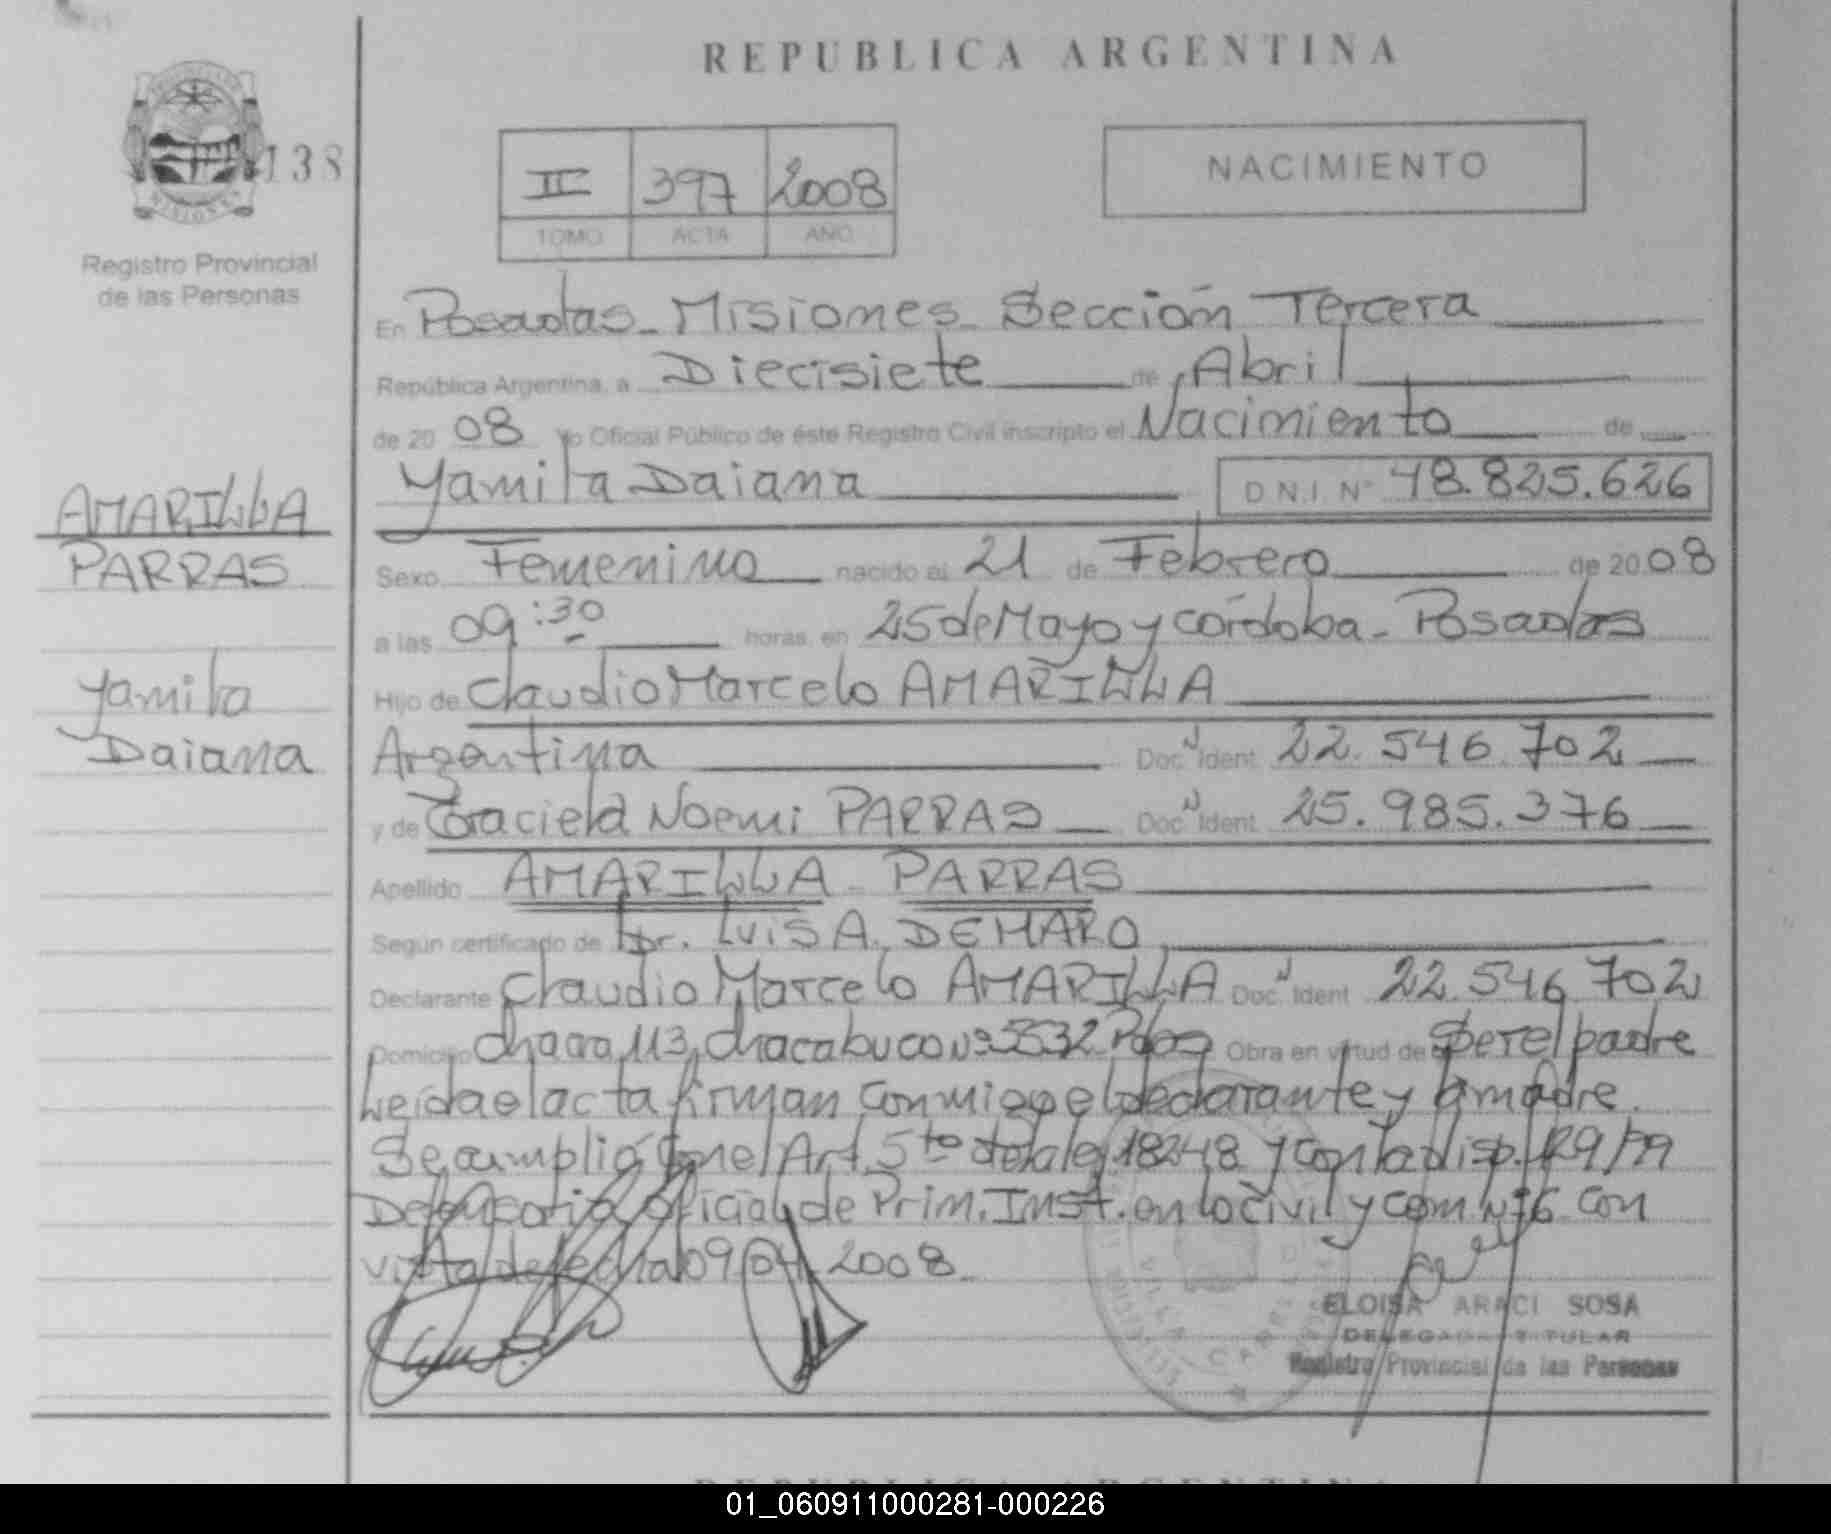 REPUBLICA ARGENTINA
PROVINCIA DE
MISIONES
138
Registro Provincial
de las Personas
II 397 2008
TOMO ACTA AÑO
NACIMIENTO
En Posadas - Misiones - Sección Tercera
República Argentina, a Diecisiete de Abril
de 2008 Yo Oficial Público de éste Registro Civil inscripto el Nacimiento de
Yamila Daiana D N.I. Nº 48.825.626
AMARILLA
PARRAS
Yamila
Daiana
Sexo Femenino nacido el 21 de Febrero de 2008
a las 09:30 horas, en 25 de Mayo y Córdoba - Posadas
Hijo de Claudio Marcelo AMARILLA
Argentina Doc. N Ident. 22.546.702
y de Graciela Noemi PARRAS Doc. N Ident. 25.985.376
Apellido AMARILLA - PARRAS
Según certificado de Dr. Luis A. DEMARO
Declarante Claudio Marcelo AMARILLA Doc. N Ident. 22.546.702
Domicilio Chacra 113, Chacabuco Nº 5532 Pdas Obra en virtud de Ser el padre
Leida el acta firman conmigo el declarante y la madre.
Se cumplió con el Art. 5to de la ley 18248 y con la disp. /99
Defensoria Oficial de Prim. Inst. en lo civil y com. Nº6 con
vista de fecha 09/04/2008.
VILLA CABELLO
ELOISA ARACI SOSA
DELEGADA TITULAR
Registro Provincial de las Personas
REPUBLICA ARGENTINA
01_060911000281-000226